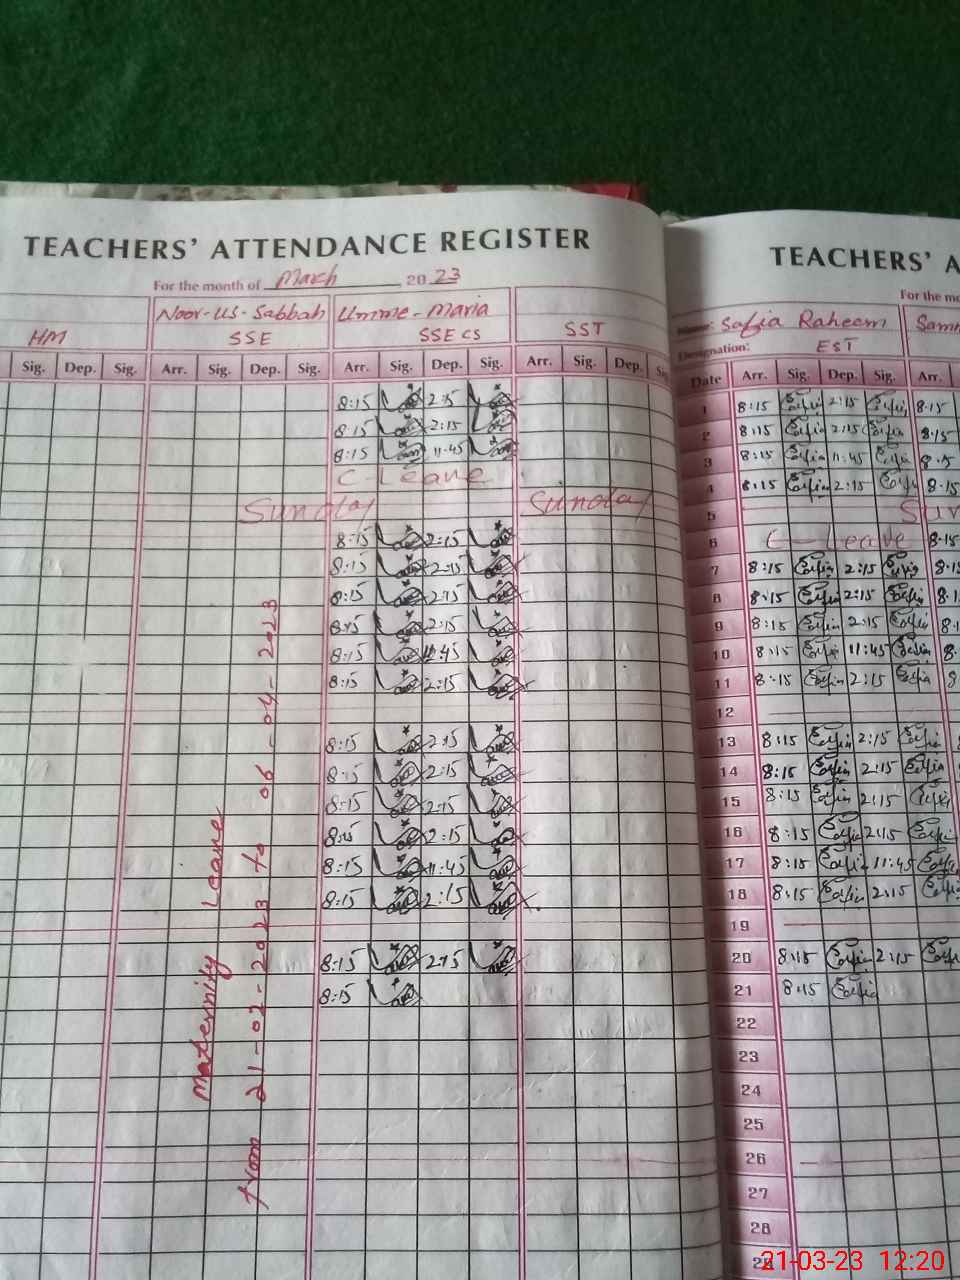 TEACHERS' ATTENDANCE REGISTER
For the month of March 2023
Noor-us-Sabbah Umme-Maria
HM SSE SSE CS SST
Sig. Dep. Sig. Arr. Sig. Dep. Sig. Arr. Sig. Dep. Sig. Arr. Sig. Dep. Sig.
8:15 2:15
8:15 2:15
8:15 11:45
C-Leave
Sunday Sunday
8:15 2:15
8:15 2:15
8:15 2:15
8:15 2:15
8:15 11:45
8:15 2:15
8:15 2:15
8:15 2:15
8:15 2:15
8:15 2:15
8:15 11:45
8:15 2:15
8:15 2:15
8:15
Maternity Leave
from 21-02-2023 to 06-04-2023
TEACHERS' A
For the mo
Name: Safia Raheem Sam
Designation: EST
Date Arr. Sig. Dep. Sig. Arr.
1 8:15 Safia 2:15 Safia 8:15
2 8:15 Safia 2:15 Safia 8:15
3 8:15 Safia 11:45 Safia 8:15
4 8:15 Safia 2:15 Safia 8:15
5 Sun
6 C-Leave 8:15
7 8:15 Safia 2:15 Safia 8:15
8 8:15 Safia 2:15 Safia 8:1
9 8:15 Safia 2:15 Safia 8:
10 8:15 Safia 11:45 Safia 8:
11 8:15 Safia 2:15 Safia 8
12
13 8:15 Safia 2:15 Safia
14 8:15 Safia 2:15 Safia
15 8:15 Safia 2:15 Safia
16 8:15 Safia 2:15 Safia
17 8:15 Safia 11:45 Safia
18 8:15 Safia 2:15 Safia
19
20 8:15 Safia 2:15 Safia
21 8:15 Safia
22
23
24
25
26
27
28
29
21-03-23 12:20